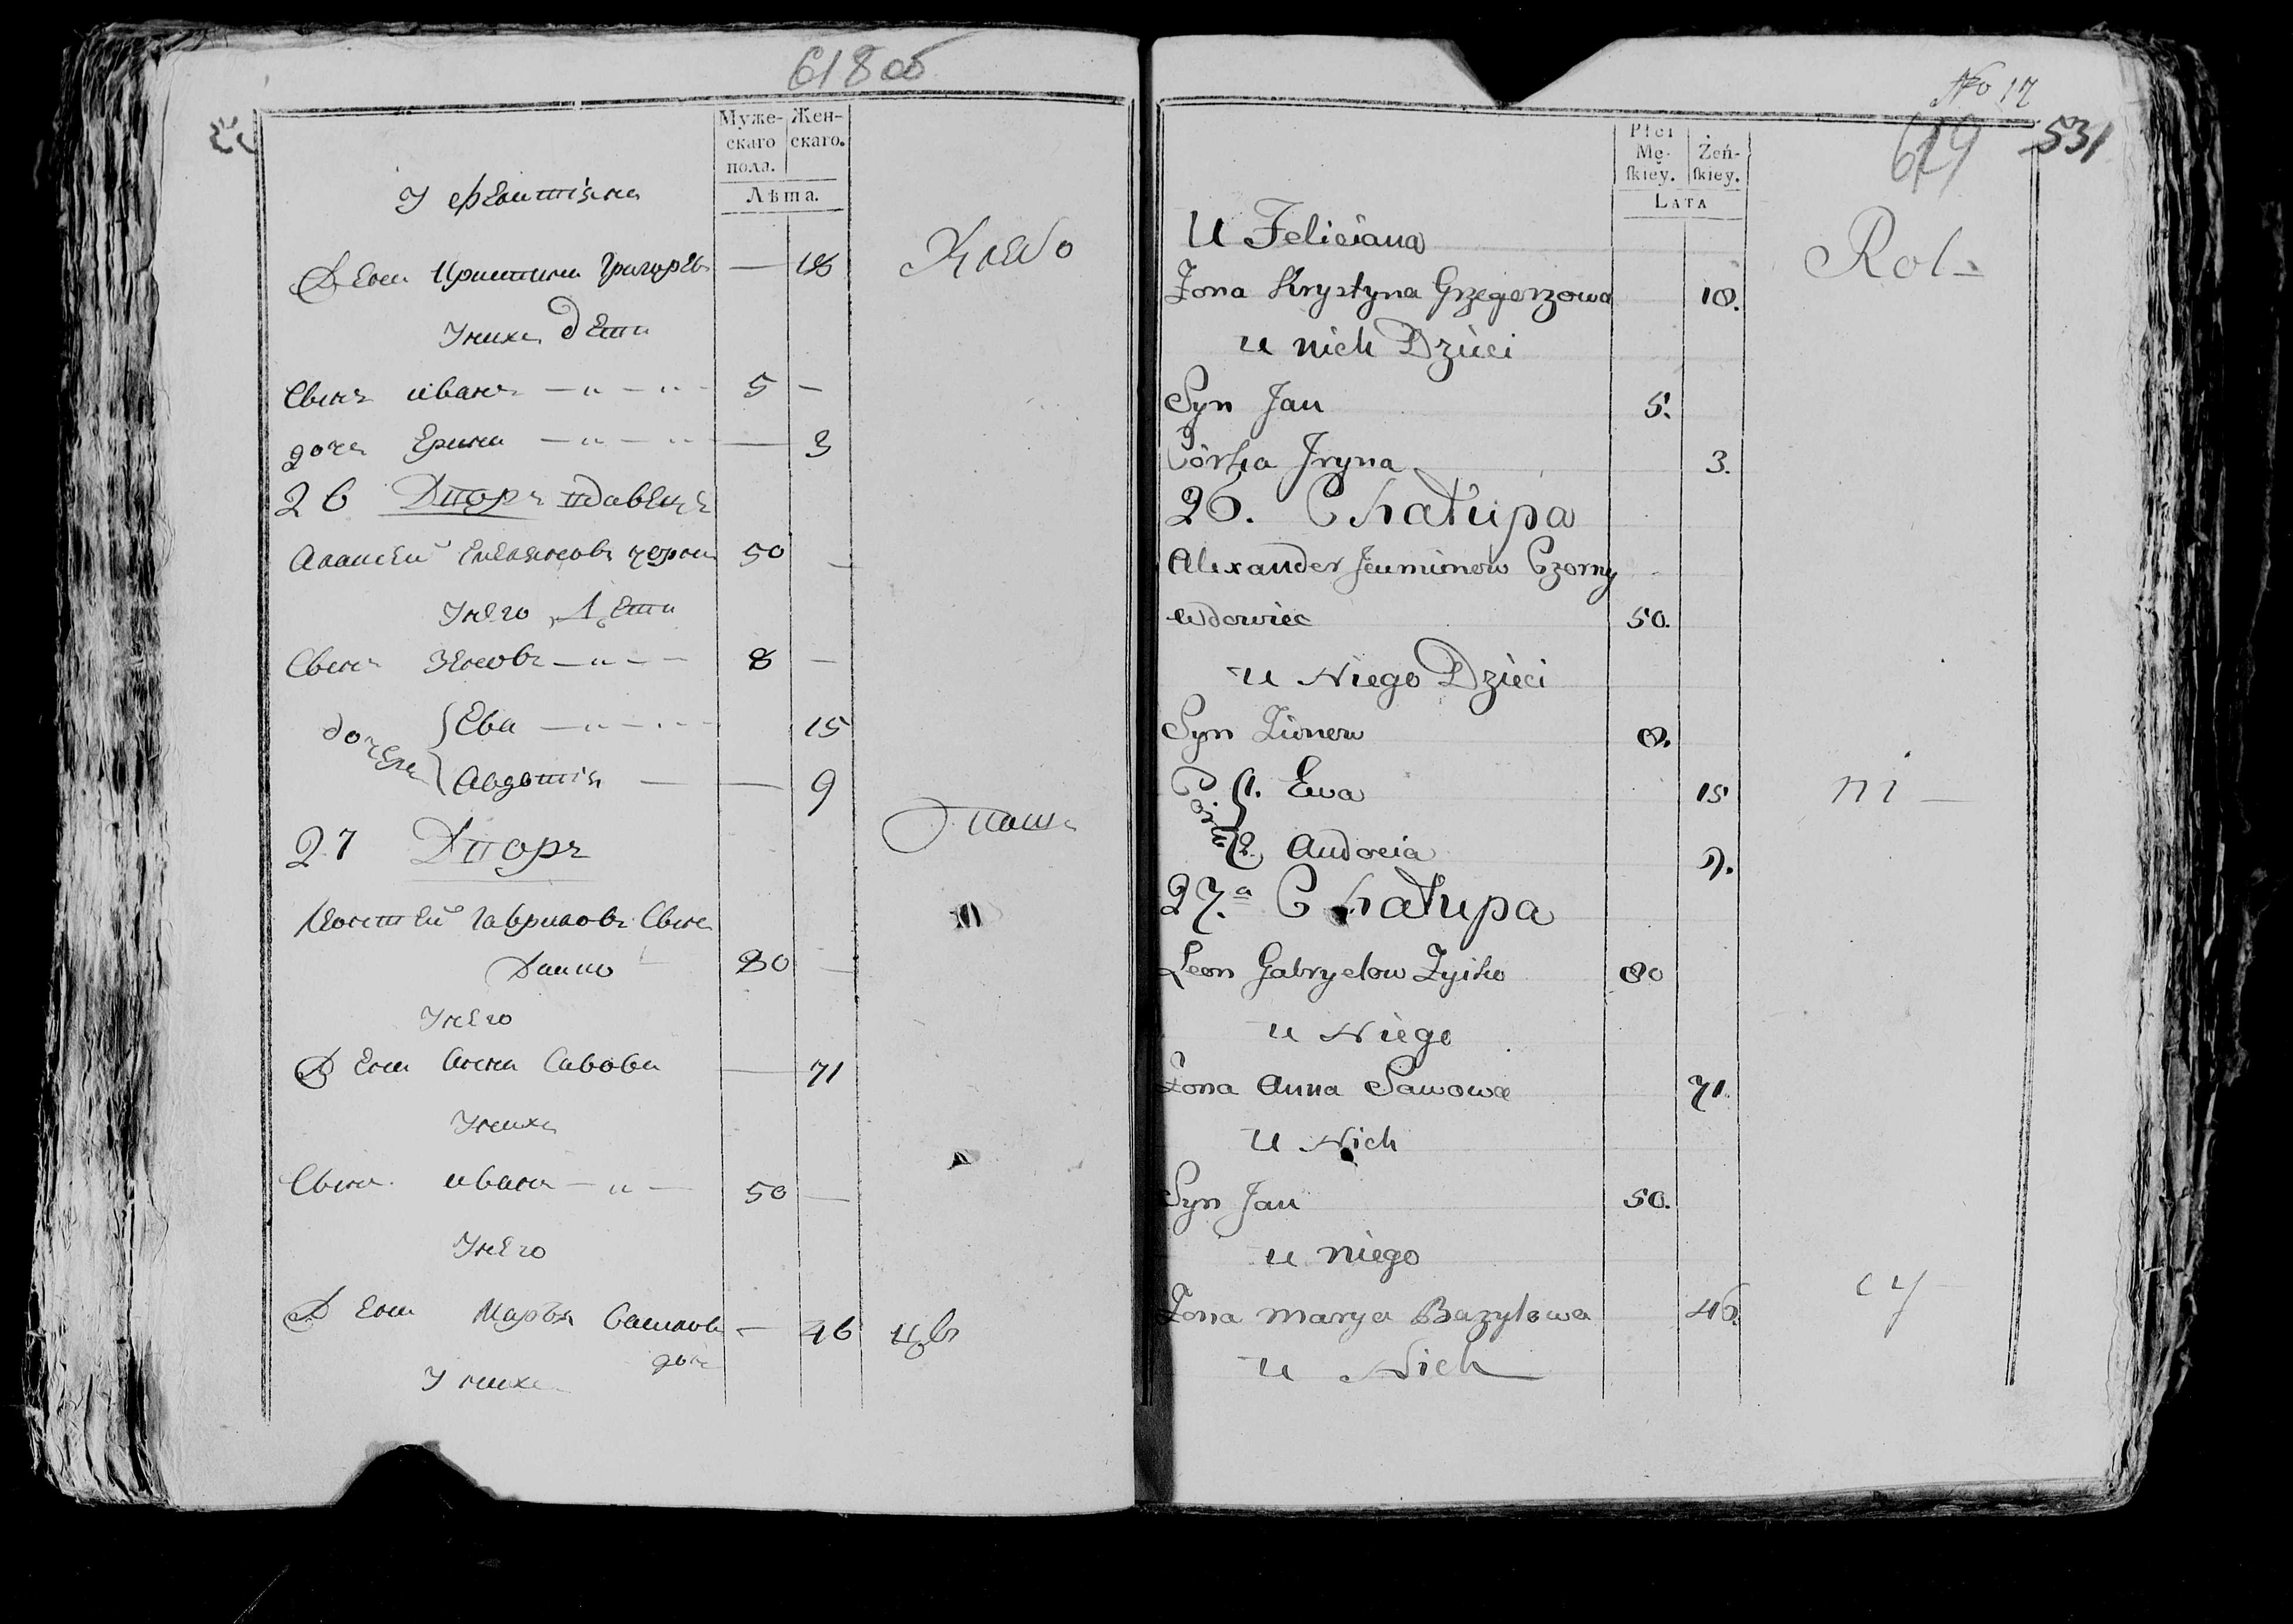 618 об
Муже-
скаго
пола.
Жен-
скаго.
Лѣта.
У
Жена Григорь — 18
Хлебо
У них дети
Сынъ Иванъ — „ — „ - 5 —
дочь Ерина — „ — „ — 3
26 Дворъ вдовецъ
50 —
У него Дети
Сынъ — „ — — 8 —
дочери
Ева — „ — „ - 15
Авдотія — — 9
27 Дворъ
паш
Гавриловъ Сынъ
80 —
У него
Жена Анна Савова — 71
У них
Сынъ Иванъ — „ — 50 —
У него
Жена Марья — 46 цы
дочь
У них
No 17
619
531
Płci
Mę-
ſkiey.
Żeń-
ſkiey.
LATA
U Feliciana
Rol-
Żona Krystyna Grzegorzowa 18.
u nich Dzieci
Syn Jan 5.
Córka Jryna 3.
26. Chałupa
Alexander Czorny
wdowiec 50.
u Niego Dzieci
Syn Zienow 8.
Córki
1. Ewa 15
ni —
2. Audocia 9.
27.a Chałupa
Leon Gabryelow 80
u Niego
Żona Anna Sawowa 71.
u Nich
Syn Jan 50.
u niego
cy —
Żona Marya Bazylowa 46.
u Nich